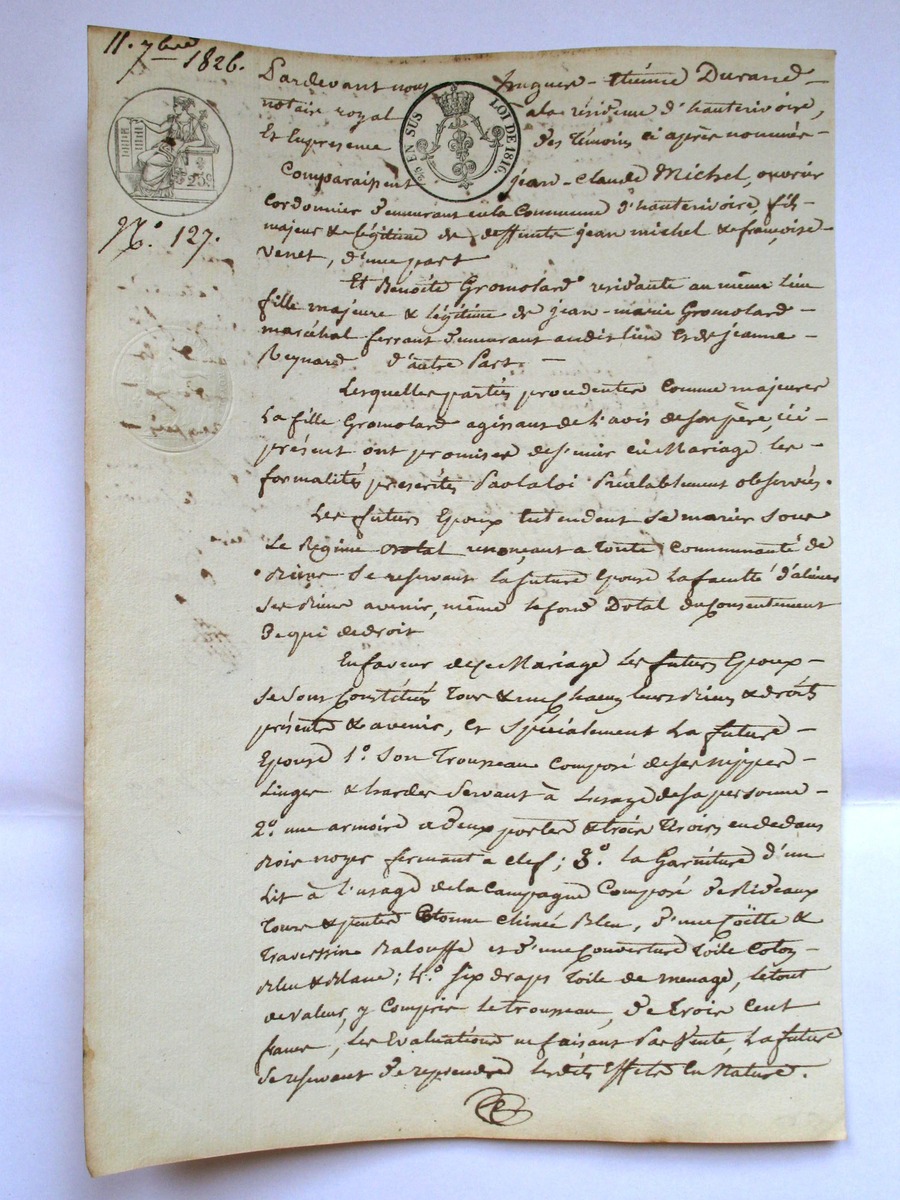 11. 7bre 1826.
Pardevant nous hugues-étiénne Durand
notaire royal a la résidence d'hauterivoire,
Et En presence des témoins ci après nommés
EN SUS LOI DE 1816.
25c
N°. 127.
Comparaissent jean-claude Michel, ouvrier
Cordonnier demeurant en la Commune d'hauterivoire, fils
majeur & légitime de deffunts jean michel & françoise
Venet, d'une part
Et Benoîte Gromolard residante au même lieu
fille majeure & légitime de jean-marie Gromolard
maréchal ferrant demeurant audit lieu et de jeanne
Reynard d'autre Part.
Lesquelles parties procedentes comme majeures
La fille Gromolard agissant de l'avis de son père, ici
présent ont promises de s'unir en Mariage les
formalités prescrites Par la loi Préalablement observées.
Les futurs Epoux Entendent se marier sous
Le Régime Dotal renonçant a toute Communauté de
Biens se reservant la future Epouse La faculté d'aliéner
ses Biens avenir, même le fond Dotal du Consentement
De qui de droit
En faveur de ce Mariage Les futurs Epoux
se sont Constitués tous & un Chacun leurs Biens & droits
présents & avenir, et spécialement La future
Epouse 1°. son Trousseau Composé de ses nippes
Linges & hardes servant à L'usage de sa personne
2°. une armoire a deux portes & trois tiroirs en dedans
Bois noyer fermant a clef; 3°. la Garniture d'un
Lit à l'usage de la Campagne Composé de Rideaux
Tours & pentes Cotonne Chinée Bleu, d'une Coëtte &
Traversin Balouffe et d'une Couverture toile Coton
Bleu & Blanc; 4°. six draps toile de menage, le tout
de valeur, y Compris le trousseau, de trois Cent
francs, Les Evaluations ne faisant Pas Vente, La future
se reservant de reprendre lesdits Effets En Nature.